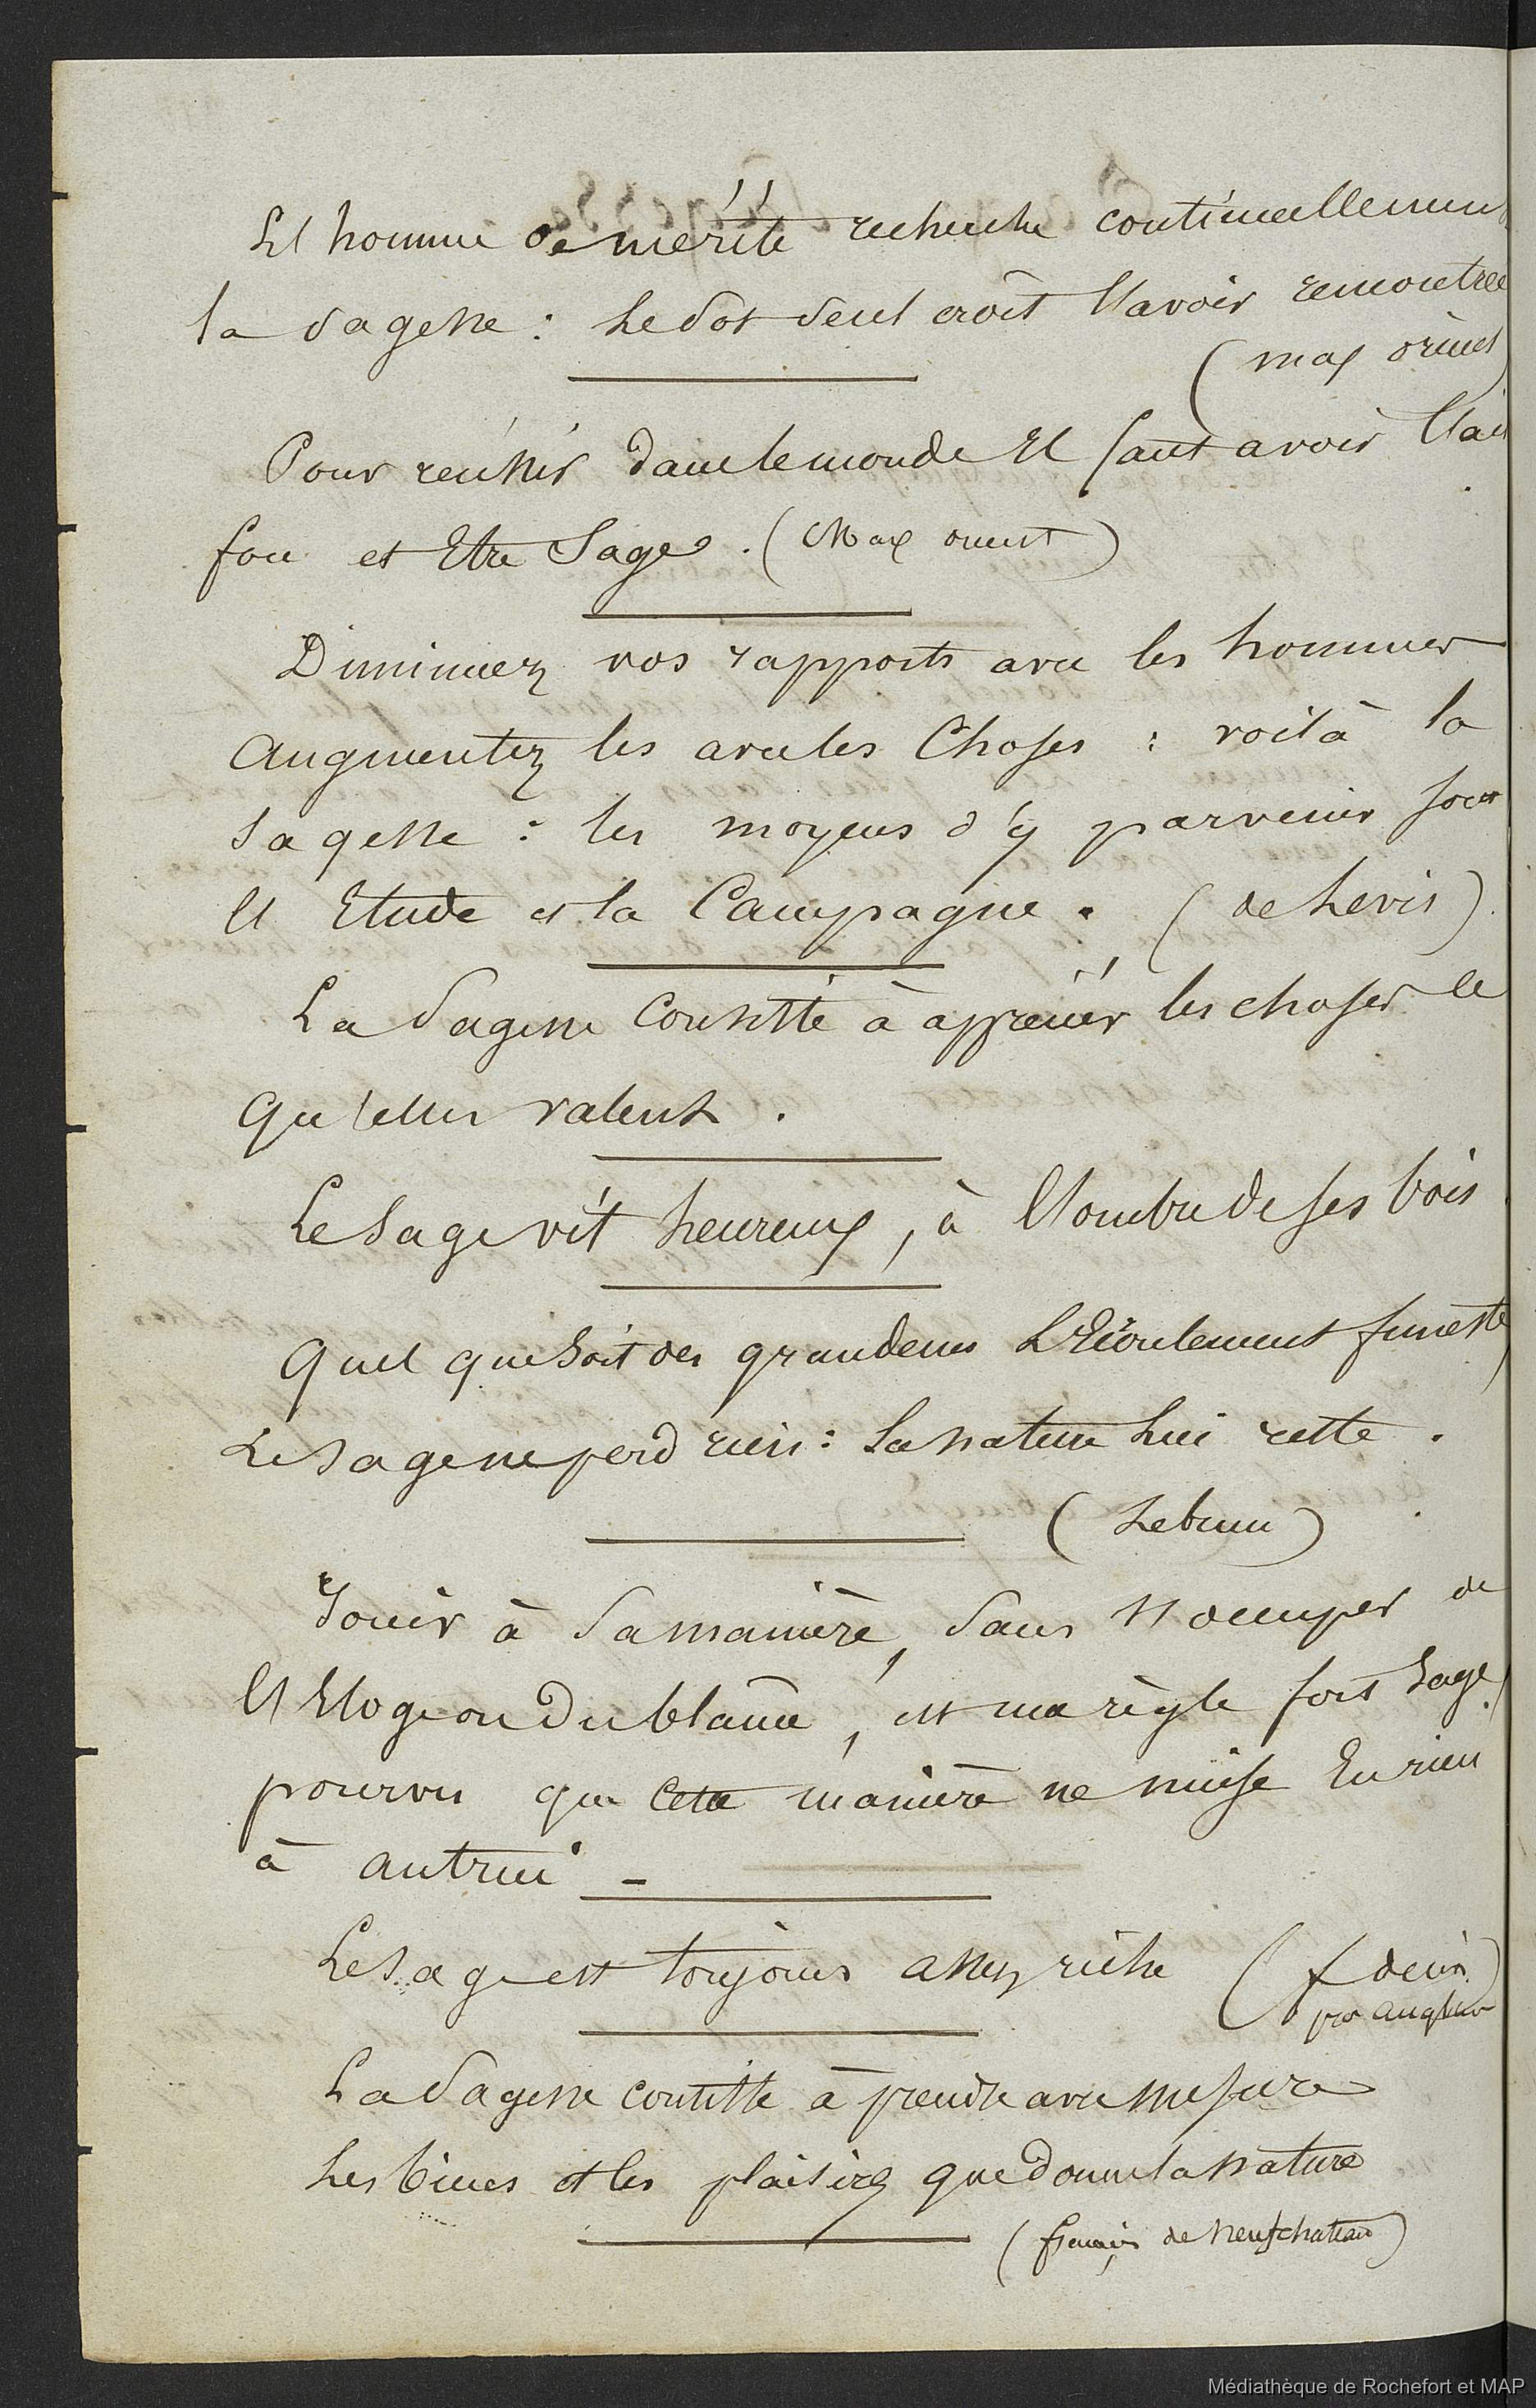 L'homme de mérite recherche continuellement
la sagesse : le sot seul croit l'avoir rencontrée
(max orient)
Pour réussir dans le monde Il faut avoir l'air
fou et Etre Sage. (Max orient)
Diminuez vos rapports avec les hommes
augmentez les avec les Choses : voilà la
sagesse : les moyens d'y parvenir sont
l'Etude et la Campagne. (de Levis)
La Sagesse consiste à apprécier les choses ce
qu'elles valent.
Le Sage vit heureux, à l'ombre de ses bois
Quel que soit des grandeurs L'Ecoulement funeste,
Le sage ne perd rien : la nature lui reste.
(Lebrun)
Jouir à sa manière, sans s'occuper de
l'Eloge ou du blâme, est une règle fort sage,
pourvu que cette manière ne nuise En rien
à autrui -
Le sage est toujours assez riche
La Sagesse consiste à prendre avec mesure
Les biens et les plaisirs que donne la nature
(françois de Neufchateau)
Médiathèque de Rochefort et MAP